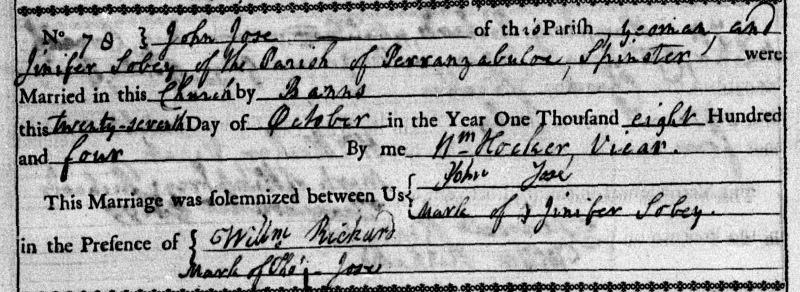 No 78 } John Jose of this Parish, yeoman, and
Jinifer Sobey of the Parish of Perranzabuloe, Spinster were
Married in this Church by Banns
this twenty-seventh Day of October in the Year One Thousand eight Hundred
and four By me Wm Hocker, Vicar.
This Marriage was ſolemnized between Us { John Jose
Mark of Jinifer Sobey.
in the Preſence of { Willm Rickard
Mark of Jose